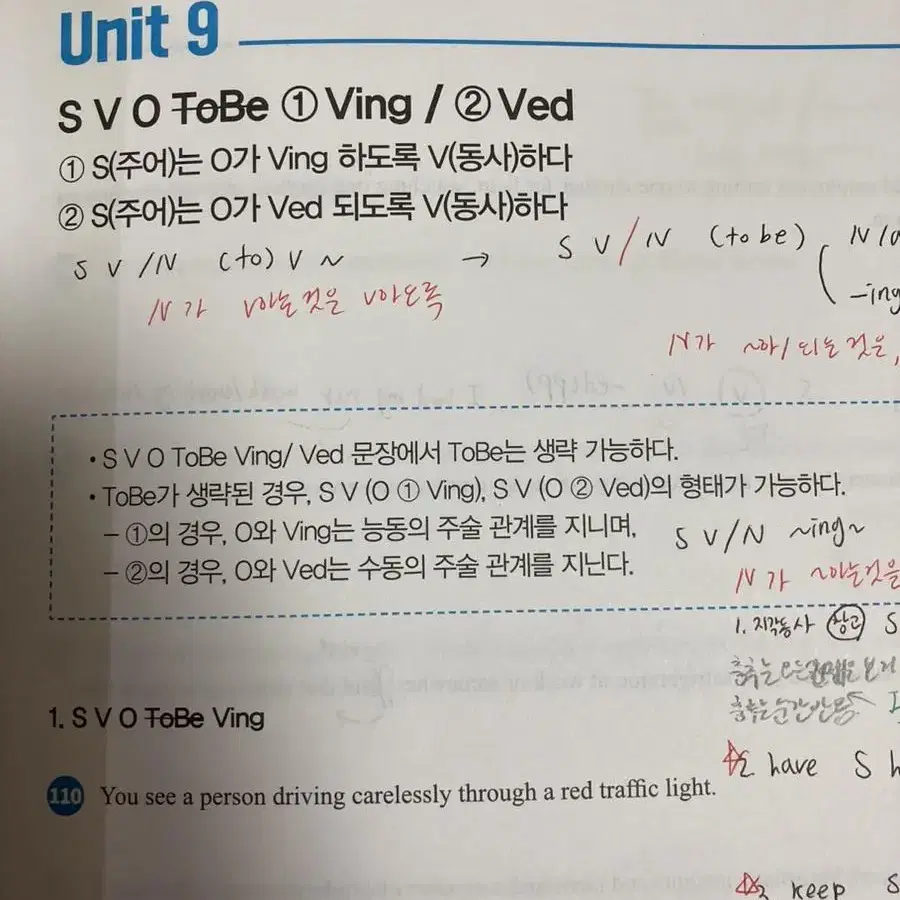 Unit 9
S V O ToBe ① Ving / ② Ved
① S(주어)는 O가 Ving 하도록 V(동사)하다
② S(주어)는 O가 Ved 되도록 V(동사)하다
S V / N (to) V ~ → S V / N (to be) N/a
-ing
N가 V하는것을 V하도록
N가 ~하/되는것을,
• S V O ToBe Ving/ Ved 문장에서 ToBe는 생략 가능하다.
• ToBe가 생략된 경우, S V (O ① Ving), S V (O ② Ved)의 형태가 가능하다.
– ①의 경우, O와 Ving는 능동의 주술 관계를 지니며,
– ②의 경우, O와 Ved는 수동의 주술 관계를 지닌다.
S V/N ~ing~
N가 ~하는것을
1. 지각동사 참고 S
춤추는
춤추는 순간
1. S V O ToBe Ving
2 have S h
110 You see a person driving carelessly through a red traffic light.
3 keep S